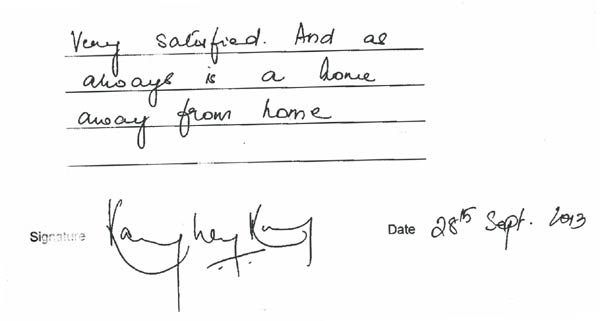 Very satisfied. And as
always is a home
away from home
Signature
Date 28th Sept. 2013